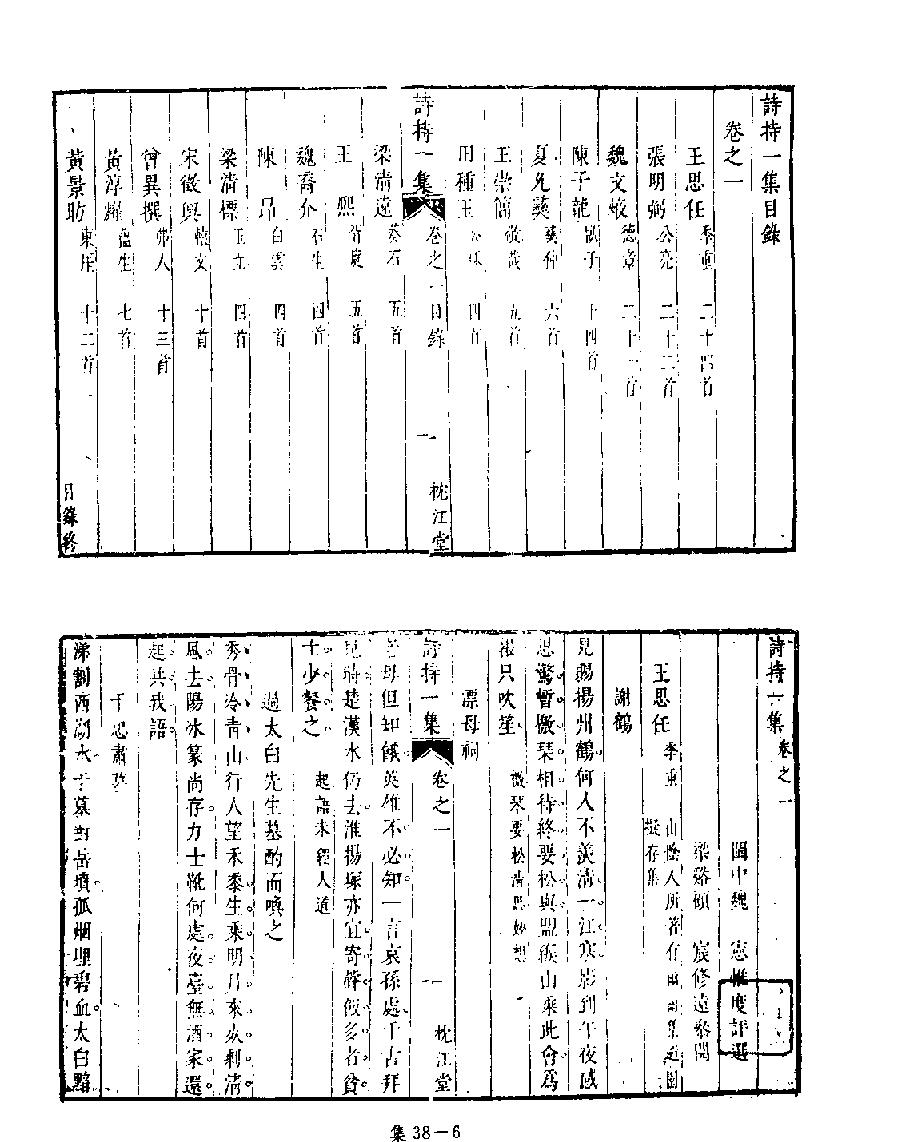 詩持一集目錄
卷之一
王思任 季重 二十四首
張明弼 公亮 二十二首
魏文焌 德章 二十一首
陳子龍 臥子 十四首
夏允彝 彝仲 六首
王崇簡 敬哉 五首
田種玉 四首
詩持一集 卷之一目錄 一 枕江堂
梁清遠 葵石 五首
王熙 五首
魏裔介 石生 四首
陳昂 白雲 四首
梁清標 玉立 四首
宋徵輿 轅文 十首
曾異撰 弗人 十三首
黃淳耀 蘊生 七首
黃景昉 東厓 十二首
目錄終
詩持一集 卷之一
閩中魏 憲惟度評選
梁谿顧 宸修遠參閱
王思任 季重 山陰人所著有
存集
謝鶴
見賜揚州鶴何人不羨清一江寒影到午夜感
思驚暫廢琴相待終要松與盟緱山乘此會爲
我只吹笙 廢琴要松清思妙想
漂母祠
老母但知餓英雄不必知一言哀孫處千古拜
詩持一集 卷之一 一 枕江堂
恩時楚漢水仍去淮揚塚亦宜寄聲飯多者貧
士少餐之 起語未經人道
過太白先生墓酌而喚之
秀骨冷青山行人望禾黍生乘明月來欲刺清
風去陽冰篆尚存力士靴何處夜臺無酒家還
起共我語
于忠肅墓
涕割西湖水于墓對岳墳孤烟埋碧血太白黯
集 38－6